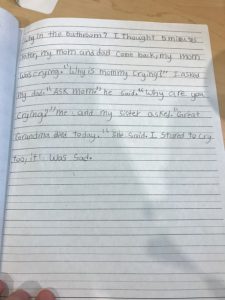 in the bathroom? I thought 5 minutes
later, my mom and dad came back, my mom
was crying. "Why is mommy crying?" I asked
my dad. "Ask mom." he said. "Why are you
crying?" me and my sister asked. "Great
Grandma died today." She said. I started to cry
too, it was sad.